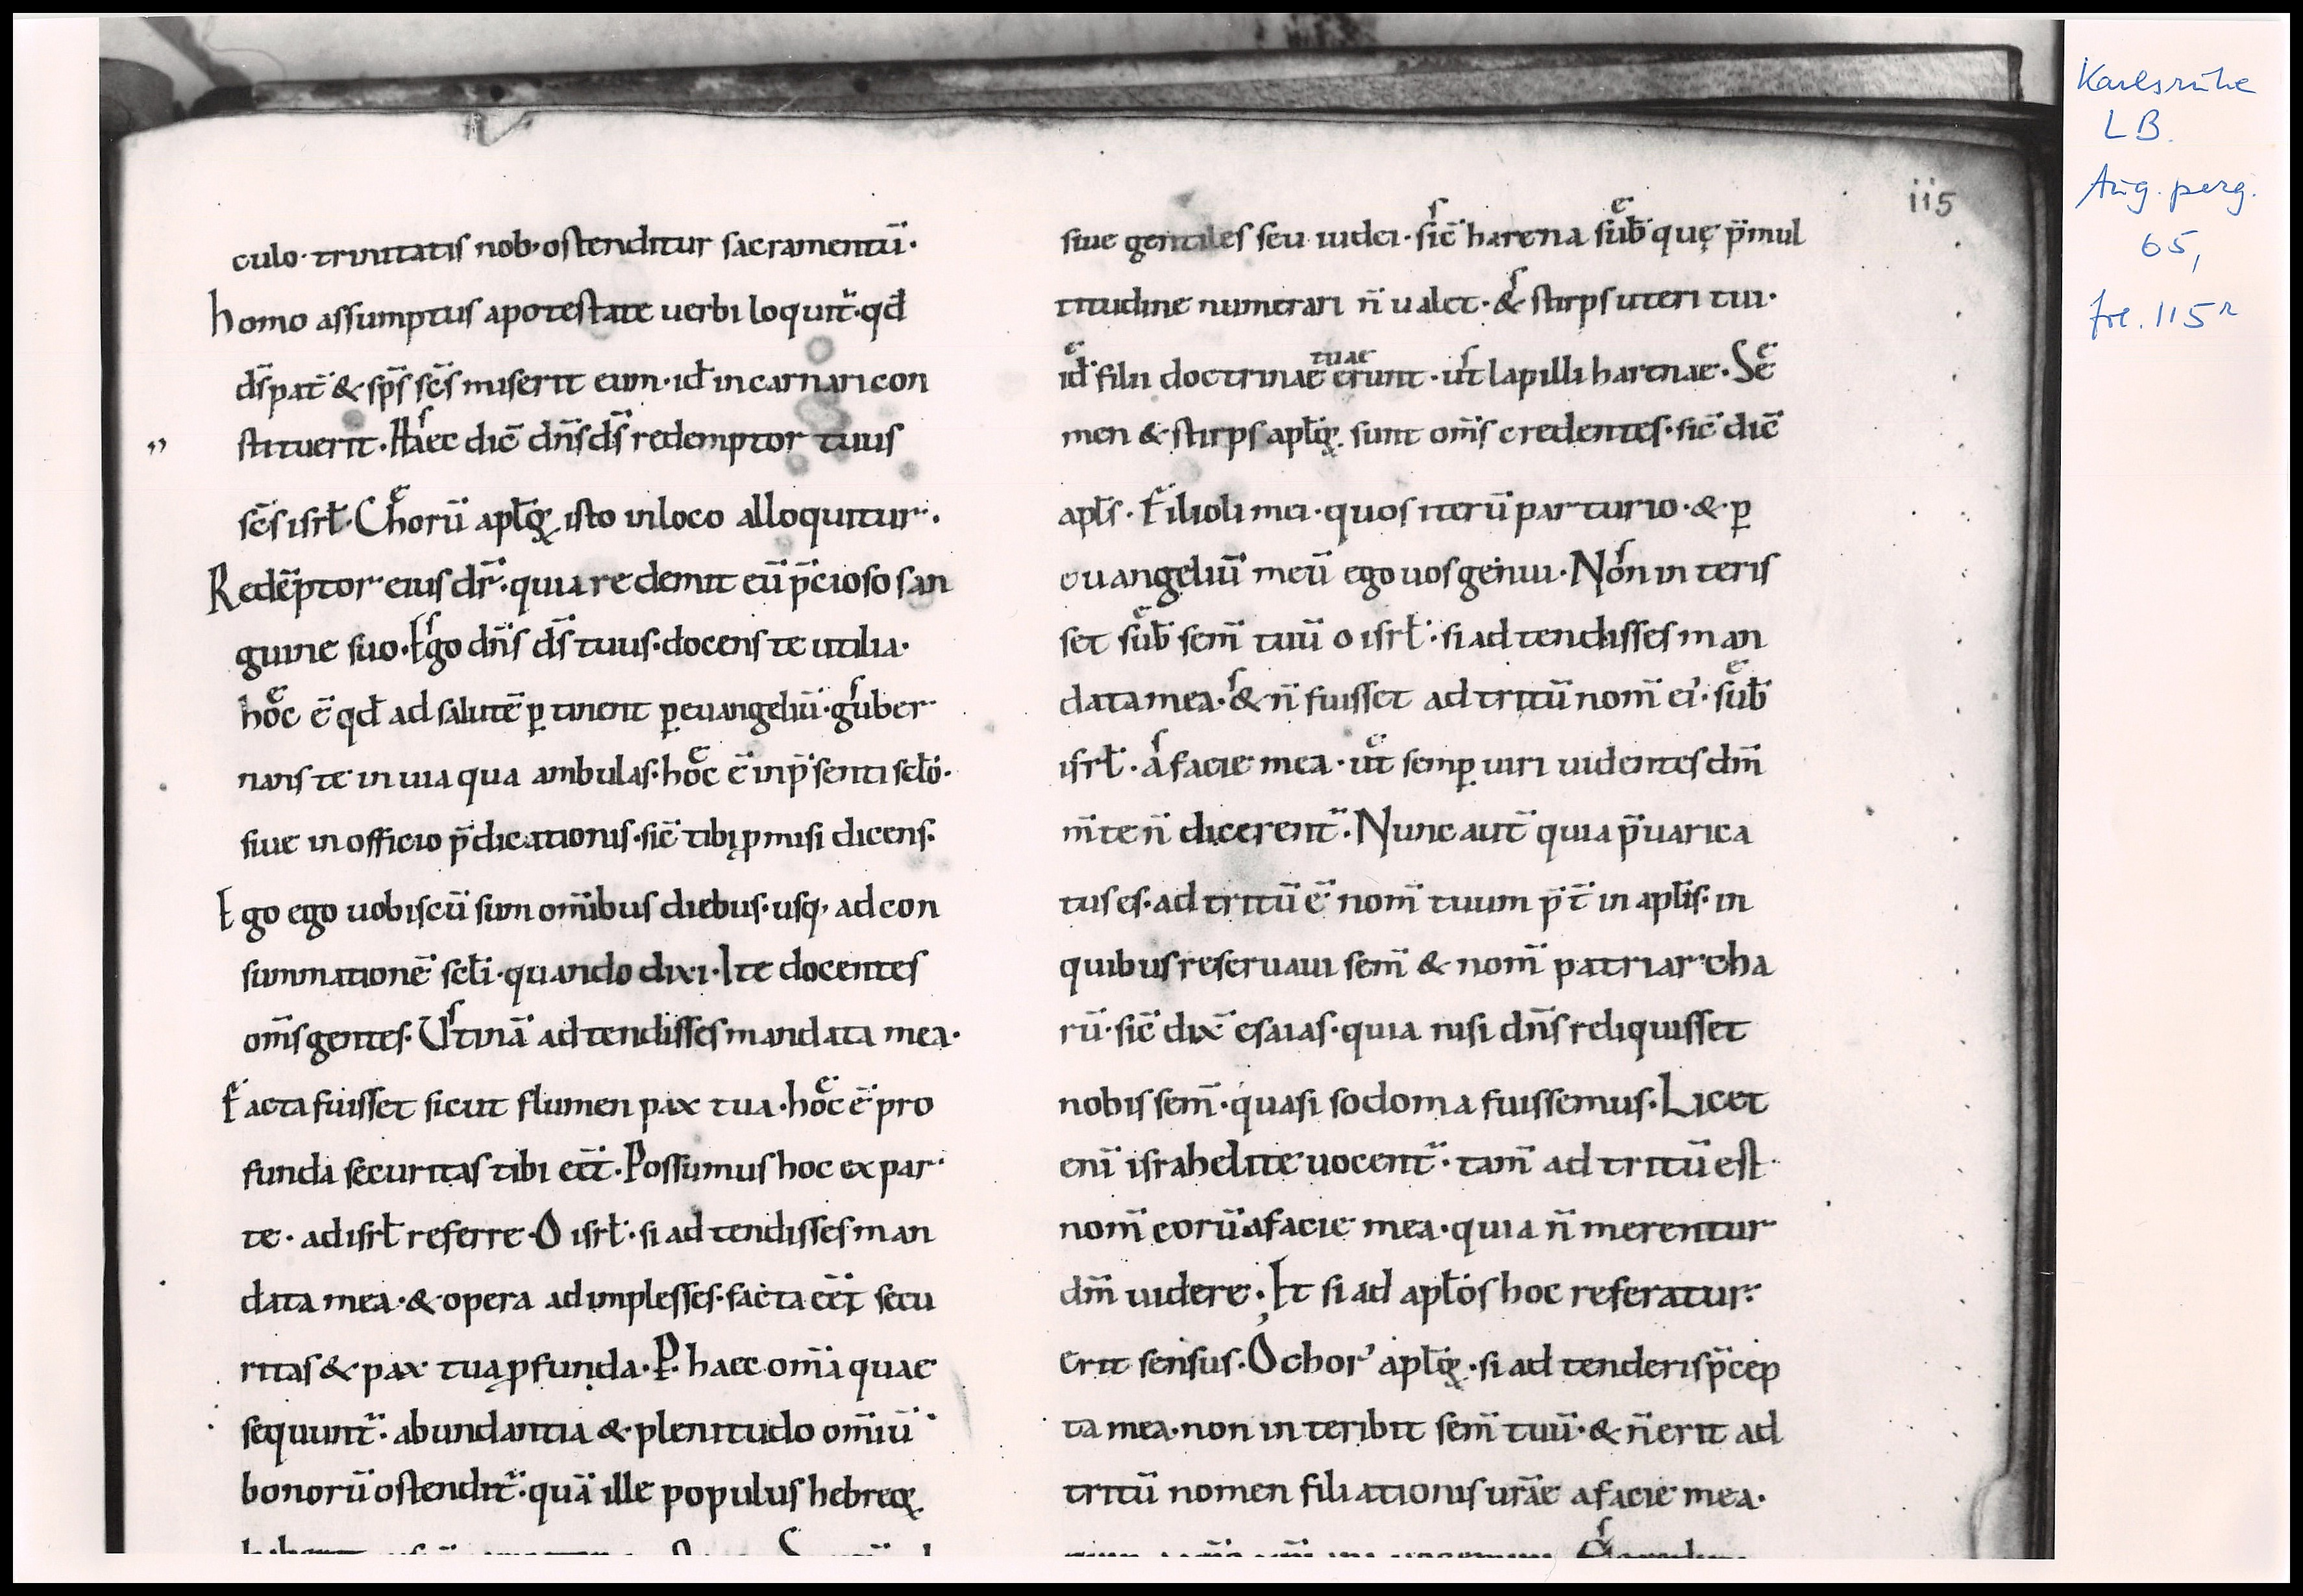 culo· trinitatis nob· ostenditur sacramentū·
homo assumptus a potestate uerbi loquit̄· qđ
dś pat̄ & sp̄s sc̄s miserit eum· id incarnari con
stituerit· Haec dic̄ dn̄s ds̄ redemptor tuus
sc̄s isrł· Chorū apłoꝝ isto in loco alloquitur·
Redēptor eius dr̄· quia redemit eū p̄cioso san
guine suo· Ego dn̄s ds̄ tuus· docens te utilia·
hoc ē qđ ad salutē ꝑtinent ꝑ euangeliū· guber
nans te in uia qua ambulas· hoc ē in p̄senti scło·
siue in officio p̄dicationis· sic̄ tibi ꝓmisi dicens·
Ego ego uobiscū sum om̄ibus diebus· usq; ad con
summationē scłi· quando dixi· Ite docentes
om̄s gentes· Utinā adtendisses mandata mea·
Facta fuisset sicut flumen pax tua· hoc ē pro
funda securitas tibi eēt· Possumus hoc ex par
te· ad isrł referre· O isrł· si adtendisses man
data mea· & opera adimplesses· facta eēt secu
ritas & pax tua ꝓfunda· P· haec om̄a quae
sequunt̄· abundantia & plenitudo om̄iū
bonorū ostendit̄· quā ille populus hebreoꝝ
siue gentiles seu iudei· sic̄ harena sub̄ quę p̄ mul
titudine numerari n̄ ualet· & stirps uteri tui·
id filii doctrinae tuae erunt· ut lapilli harenae· Se
men & stirps apłoꝝ sunt om̄s credentes· sic̄ dic̄
apłs· Filioli mei· quos iterū parturio· & ꝑ
euangeliū meū ego uos genui· Non interis
set sub̄ sem̄ tuū o isrł· si adtendisses man
data mea· & n̄ fuisset adtritū nom̄ ei'· sub̄
isrł· a facie mea· ut semꝑ uiri uidentes dm̄
m̄te n̄ dicerent̄· Nunc aut̄ quia p̄uarica
tus es· adtritū ē nom̄ tuum p̄t̄ in apłis· in
quibus reseruaui sem̄ & nom̄ patriarcha
rū· sic̄ dix̄ esaias· quia nisi dn̄s reliquisset
nobis sem̄· quasi sodoma fuissemus· Licet
eni̅ israhelite uocent̄· tam̄ adtritū est
nom̄ eorū a facie mea· quia n̄ merentur
dm̄ uidere· Et si ad apłos hoc referatur·
erit sensus· O chor' apłoꝝ· si adtenderis p̄cep
ta mea· non interibit sem̄ tuū· & n̄ erit ad
tritū nomen filiationis ur̄ae a facie mea·
115
Karlsruhe
LB.
Aug. perg.
65,
fol. 115r